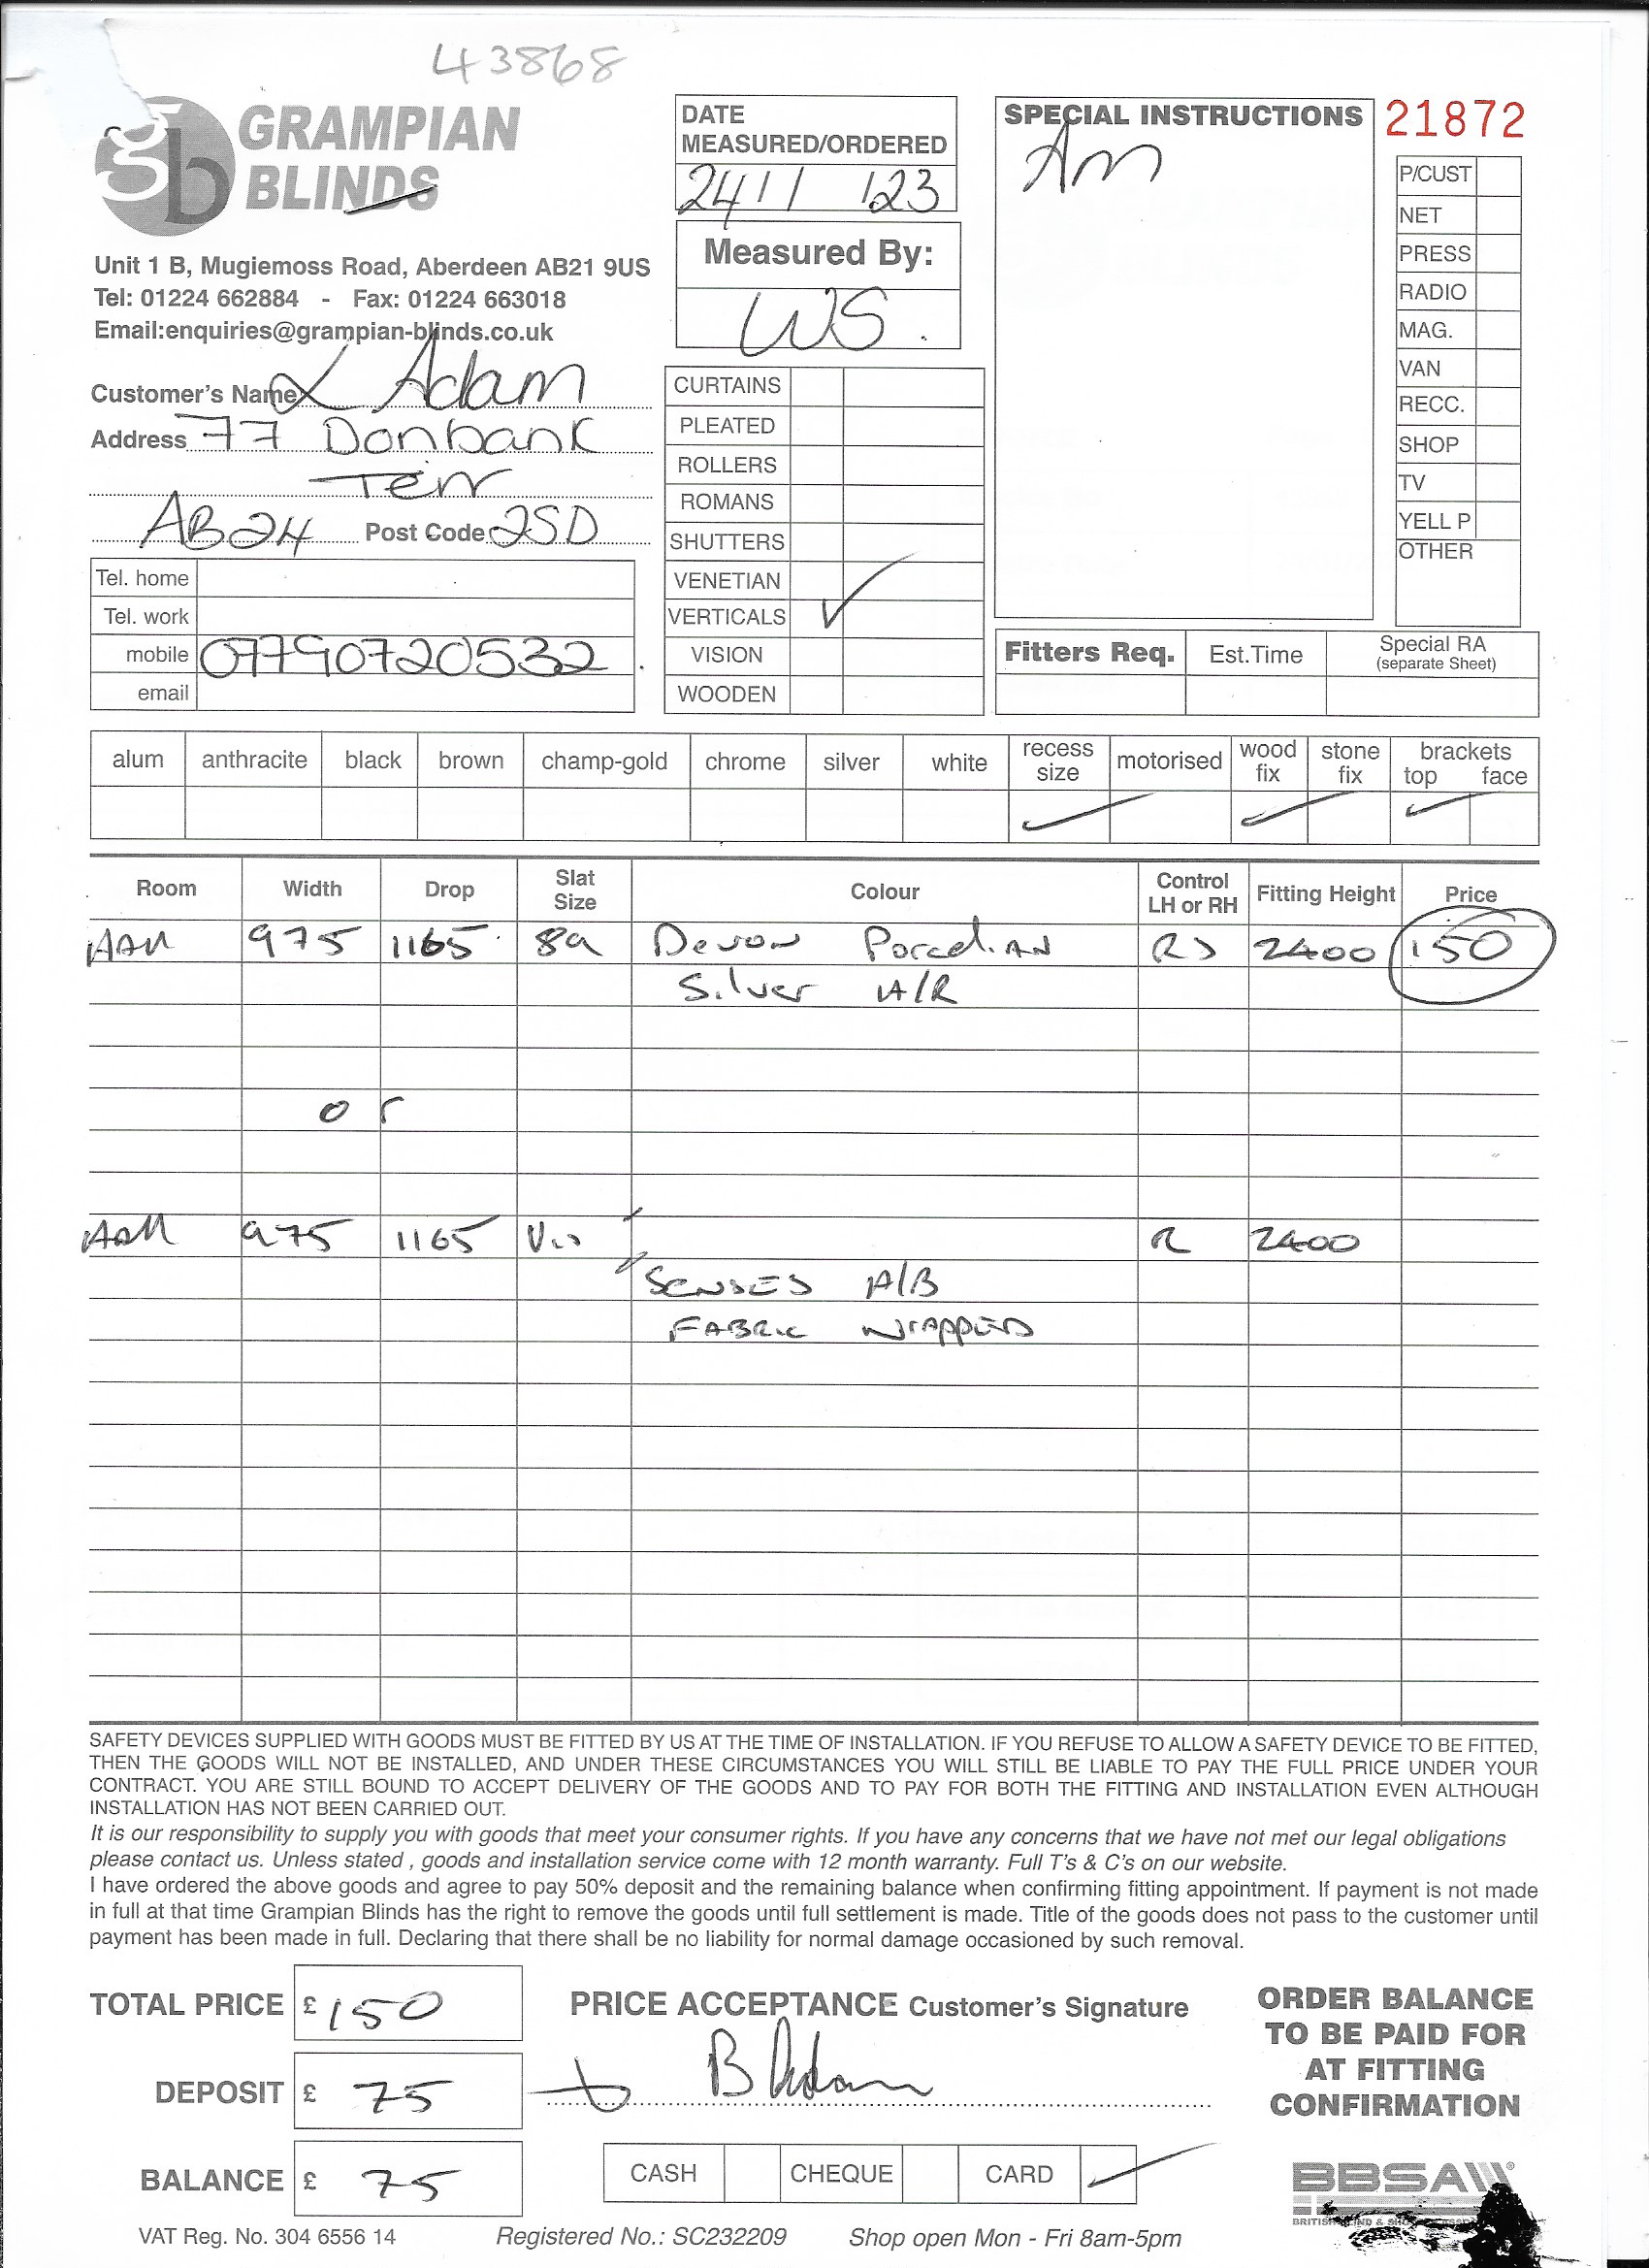 43868
GRAMPIAN
BLINDS
Unit 1 B, Mugiemoss Road, Aberdeen AB21 9US
Tel: 01224 662884 - Fax: 01224 663018
Email:enquiries@grampian-blinds.co.uk
Customer's Name L Adam
Address 77 Donbank
Terr
AB24 Post Code 2SD
Tel. home
Tel. work
mobile 07790720532
email
DATE
MEASURED/ORDERED
24/1/23
Measured By:
WS.
CURTAINS
PLEATED
ROLLERS
ROMANS
SHUTTERS
VENETIAN
VERTICALS ✓
VISION
WOODEN
SPECIAL INSTRUCTIONS
Am
21872
P/CUST
NET
PRESS
RADIO
MAG.
VAN
RECC.
SHOP
TV
YELL P
OTHER
Fitters Req. Est.Time Special RA
(separate Sheet)
alum anthracite black brown champ-gold chrome silver white recess size motorised wood fix stone fix brackets top face
✓ ✓ ✓
Room Width Drop Slat Size Colour Control LH or RH Fitting Height Price
975 1165 89 Devon Porcelian 2400 150
Silver A/R
or
975 1165 Vis R 2400
SENSES A/B
FABRIC WRAPPED
SAFETY DEVICES SUPPLIED WITH GOODS MUST BE FITTED BY US AT THE TIME OF INSTALLATION. IF YOU REFUSE TO ALLOW A SAFETY DEVICE TO BE FITTED,
THEN THE GOODS WILL NOT BE INSTALLED, AND UNDER THESE CIRCUMSTANCES YOU WILL STILL BE LIABLE TO PAY THE FULL PRICE UNDER YOUR
CONTRACT. YOU ARE STILL BOUND TO ACCEPT DELIVERY OF THE GOODS AND TO PAY FOR BOTH THE FITTING AND INSTALLATION EVEN ALTHOUGH
INSTALLATION HAS NOT BEEN CARRIED OUT.
It is our responsibility to supply you with goods that meet your consumer rights. If you have any concerns that we have not met our legal obligations
please contact us. Unless stated , goods and installation service come with 12 month warranty. Full T's & C's on our website.
I have ordered the above goods and agree to pay 50% deposit and the remaining balance when confirming fitting appointment. If payment is not made
in full at that time Grampian Blinds has the right to remove the goods until full settlement is made. Title of the goods does not pass to the customer until
payment has been made in full. Declaring that there shall be no liability for normal damage occasioned by such removal.
TOTAL PRICE £ 150
DEPOSIT £ 75
BALANCE £ 75
PRICE ACCEPTANCE Customer's Signature
B Adam
CASH CHEQUE CARD ✓
ORDER BALANCE
TO BE PAID FOR
AT FITTING
CONFIRMATION
BBSA
VAT Reg. No. 304 6556 14 Registered No.: SC232209 Shop open Mon - Fri 8am-5pm